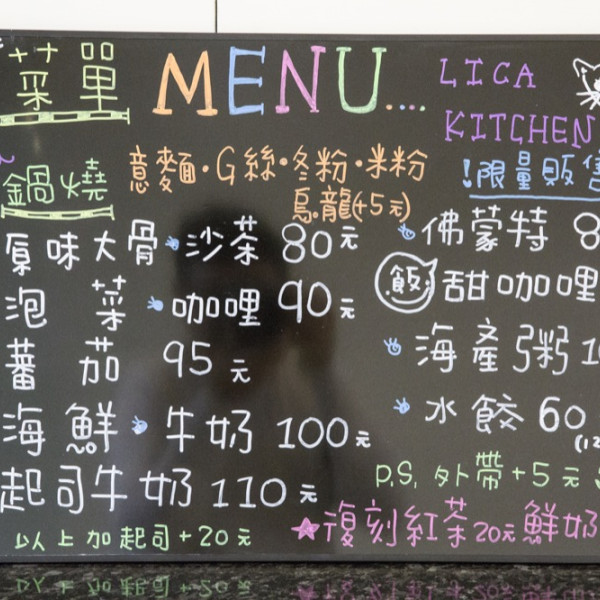 菜單 MENU.... LICA
KITCHEN
鍋燒 意麵·G絲·冬粉·米粉
烏龍(+5元)
!限量販售
原味大骨 沙茶 80元
泡菜 咖哩 90元
蕃茄 95元
海鮮 牛奶 100元
起司牛奶 110元
以上加起司+20元
佛蒙特 8
飯 甜咖哩
海產粥 1
水餃 60
(12
P.S, 外帶+5元
★復刻紅茶20元鮮奶